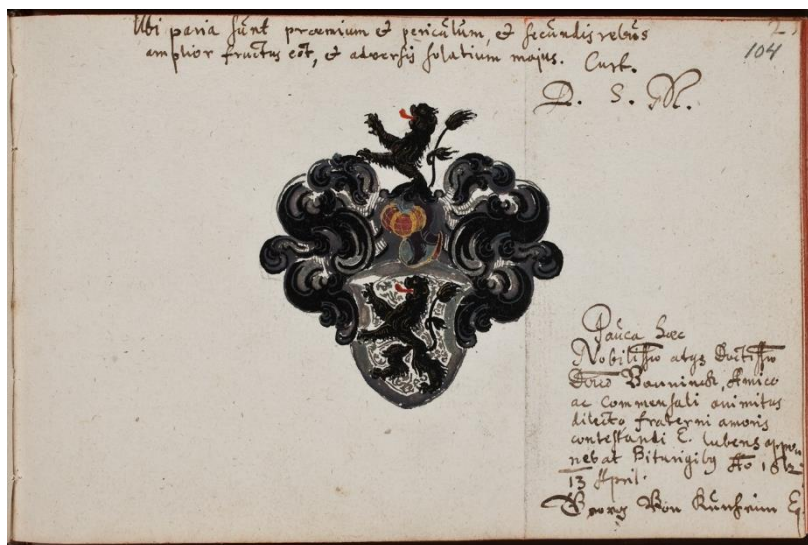 Ubi paria sunt præmium et periculum, et secundis rebus
amplior fructus est, et adversis solatium majus. Curt.
104
D. S. M.
Pauca hæc
Nobilissimo atque Doctissimo
Banninck, Amico
ac commensali animitus
dilecto, fraterni amoris
contestandi E. lubens appo
nebat Biturigibus Ao
13 April.
Georg Von Kunheim Eq.